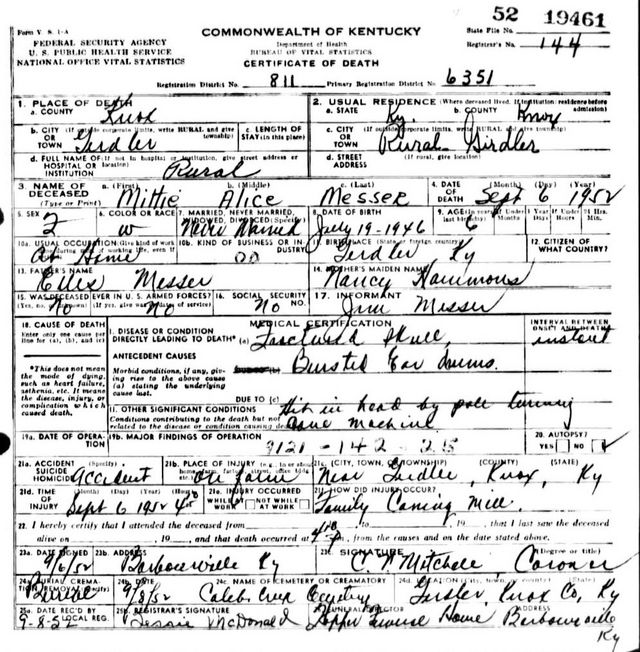 Form V. S. 1-A
COMMONWEALTH OF KENTUCKY
52 19461
State File No.
FEDERAL SECURITY AGENCY
U. S. PUBLIC HEALTH SERVICE
NATIONAL OFFICE VITAL STATISTICS
Department of Health
BUREAU OF VITAL STATISTICS
CERTIFICATE OF DEATH
Registrar's No. 144
Registration District No. 811 Primary Registration District No. 6351
1. PLACE OF DEATH
a. COUNTY Knox
2. USUAL RESIDENCE (Where deceased lived. If institution: residence before admission)
a. STATE Ky. b. COUNTY Knox
b. CITY (If outside corporate limits, write RURAL and give township) OR TOWN Girdler
c. LENGTH OF STAY (in this place)
c. CITY (If outside corporate limits, write RURAL and give township) OR TOWN Rural Girdler
d. FULL NAME OF (If not in hospital or institution, give street address or location) HOSPITAL OR INSTITUTION Rural
d. STREET ADDRESS (If rural, give location)
3. NAME OF DECEASED (Type or Print) a. (First) Mittie b. (Middle) Alice c. (Last) Messer
4. DATE OF DEATH (Month) (Day) (Year) Sept 6 1952
5. SEX F
6. COLOR OR RACE W
7. MARRIED, NEVER MARRIED, WIDOWED, DIVORCED (Specify) Never Married
8. DATE OF BIRTH July 19-1946
9. AGE (In years) 6
10a. USUAL OCCUPATION (Give kind of work done during most of working life, even if retired) At Home
10b. KIND OF BUSINESS OR INDUSTRY
11. BIRTHPLACE (State or foreign country) Girdler Ky
12. CITIZEN OF WHAT COUNTRY?
13. FATHER'S NAME Messer
14. MOTHER'S MAIDEN NAME Nancy Hammons
15. WAS DECEASED EVER IN U. S. ARMED FORCES? (Yes, no, or unknown) (If yes, give war or dates of service) No No
16. SOCIAL SECURITY NO. No
17. INFORMANT Jim Messer
18. CAUSE OF DEATH
Enter only one cause per line for (a), (b), and (c)
MEDICAL CERTIFICATION
INTERVAL BETWEEN ONSET AND DEATH
I. DISEASE OR CONDITION DIRECTLY LEADING TO DEATH* (a) Fractured Skull instant
*This does not mean the mode of dying, such as heart failure, asthenia, etc. It means the disease, injury, or complication which caused death.
ANTECEDENT CAUSES Bursted Ear Drums.
Morbid conditions, if any, giving rise to the above cause (a) stating the underlying cause last.
DUE TO (c)
II. OTHER SIGNIFICANT CONDITIONS Hit in head by pole turning
Conditions contributing to the death but not related to the disease or condition causing death. Cane Machine
19a. DATE OF OPERATION
19b. MAJOR FINDINGS OF OPERATION
9121-142-25
20. AUTOPSY? YES NO
21a. ACCIDENT SUICIDE HOMICIDE (Specify) Accident
21b. PLACE OF INJURY On farm
21c. (CITY, TOWN, OR TOWNSHIP) (COUNTY) (STATE) Near Girdler, Knox, Ky
21d. TIME OF INJURY (Month) (Day) (Year) (Hour) Sept 6 1952
21e. INJURY OCCURRED WHILE AT WORK NOT WHILE AT WORK
21f. HOW DID INJURY OCCUR? Family Caning Mill.
22. I hereby certify that I attended the deceased from , 19 , to , 19 , that I last saw the deceased
alive on , 19 , and that death occurred at , from the causes and on the date stated above.
23a. DATE SIGNED 9/6/52
23b. ADDRESS Barbourville Ky
23c. SIGNATURE (Degree or title) Mitchell Coroner
24a. BURIAL, CREMATION, REMOVAL (Specify) Burial
24b. DATE 9/8/52
24c. NAME OF CEMETERY OR CREMATORY Calebs Creek Cemetery
24d. LOCATION (City, town, or county) (State) Girdler, Knox Co, Ky
25a. DATE REC'D BY LOCAL REG. 9-8-52
25b. REGISTRAR'S SIGNATURE Bessie McDonald
FUNERAL DIRECTOR ADDRESS Hopper Funeral Home Barbourville Ky